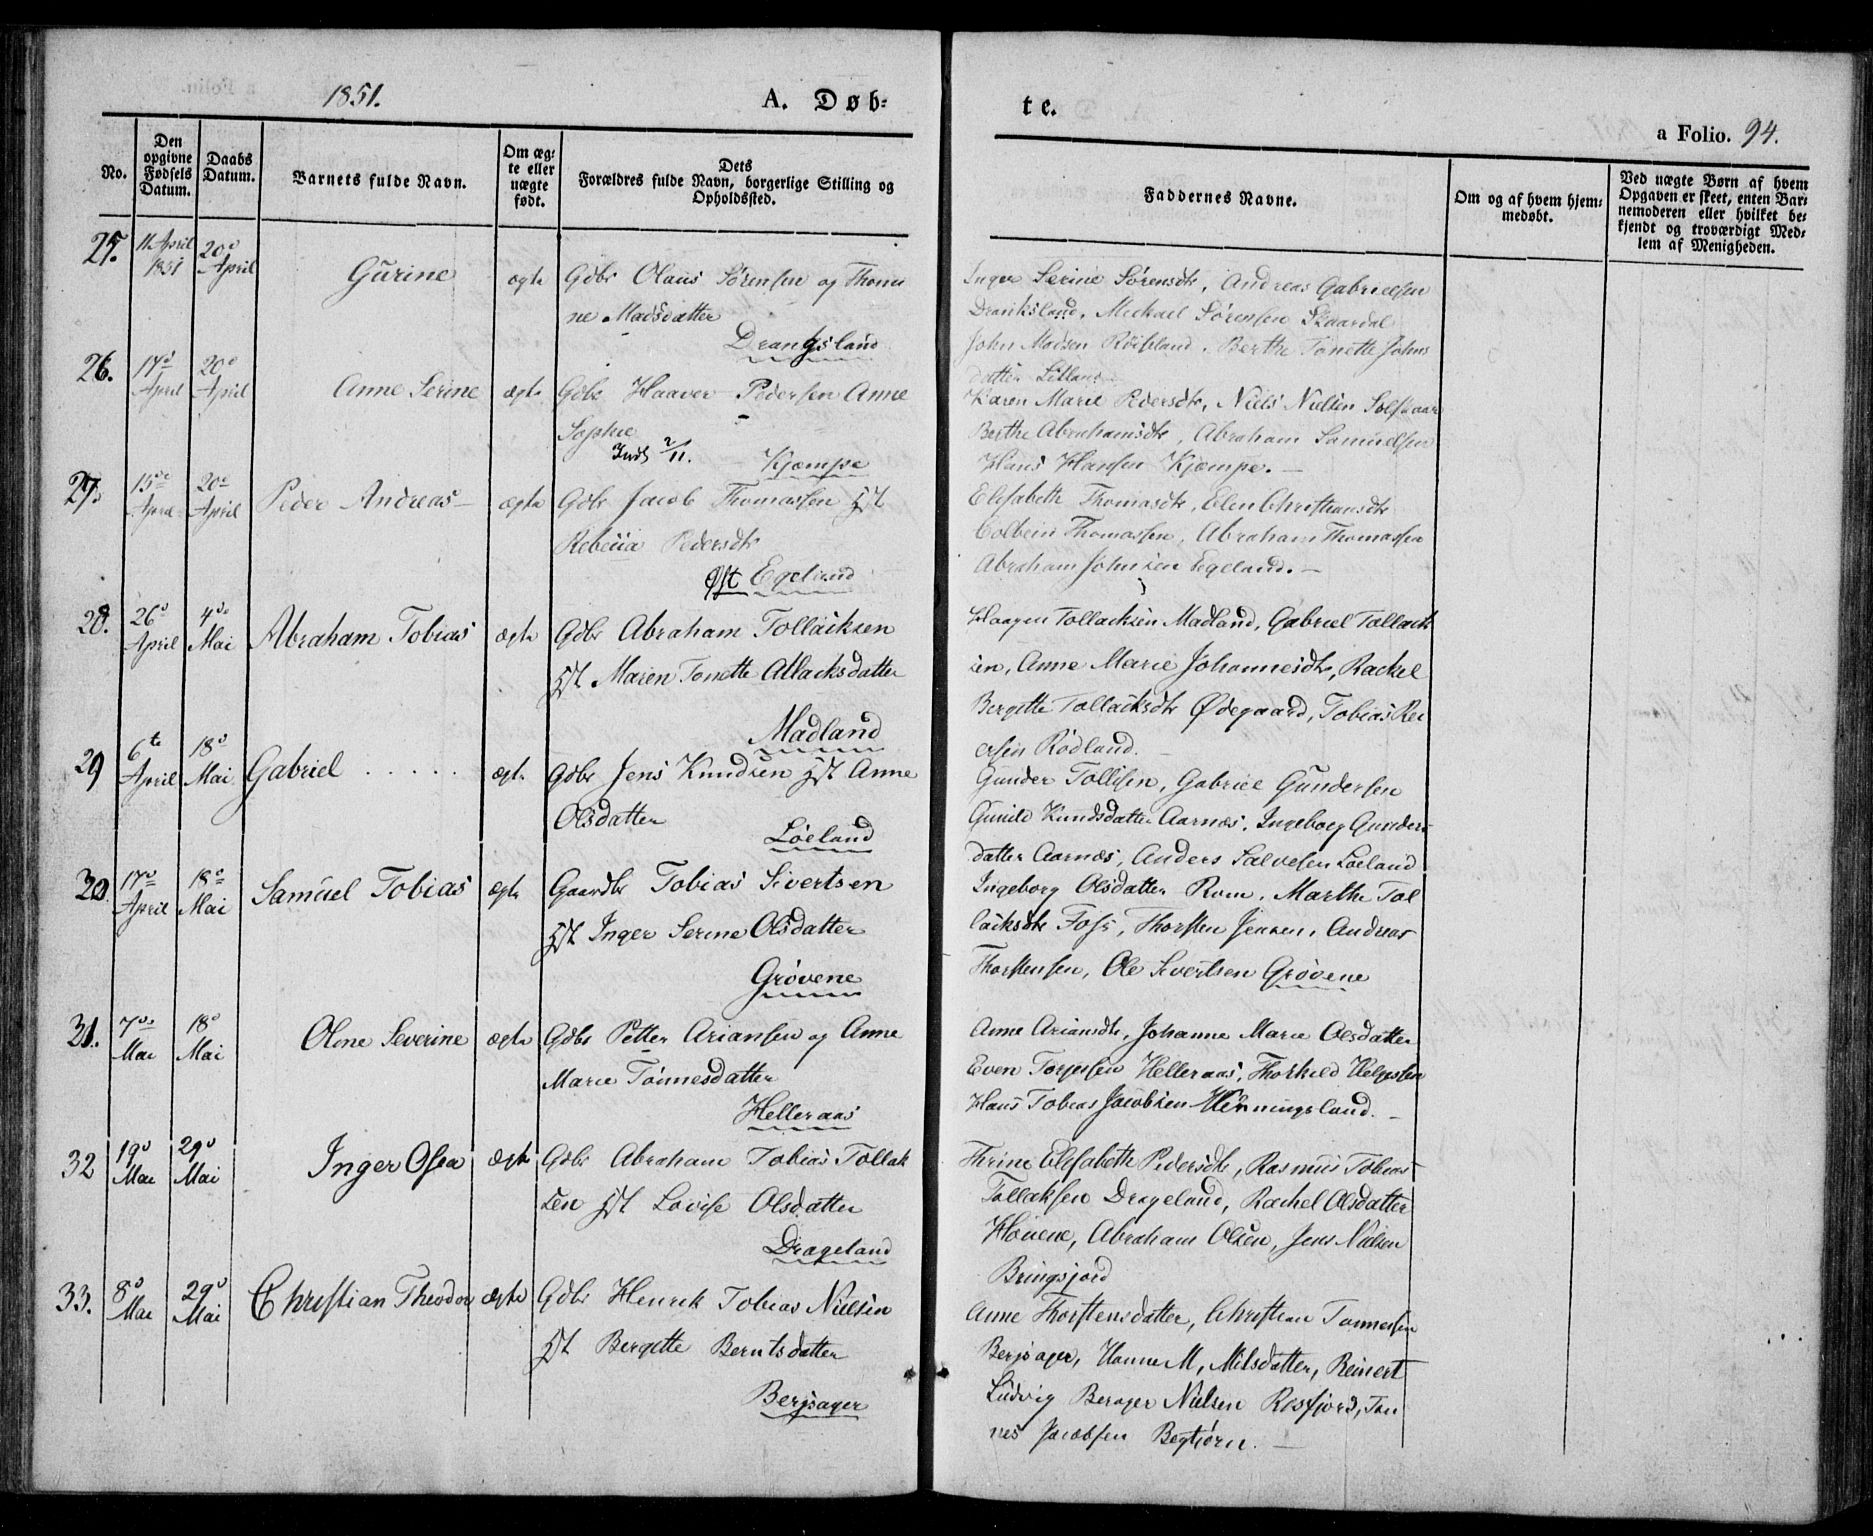 1851.
A. Døb-
te.
a Folio. 94.
No.
Den opgivne Fødsels Datum.
Daabs Datum.
Barnets fulde Navn.
Om ægte eller uægte født.
Dets Forældres fulde Navn, borgerlige Stilling og Opholdssted.
Faddernes Navne.
Om og af hvem hjemmedøbt.
Ved uægte Børn af hvem Opgaven er skeet, enten Barnemoderen eller hvilket bekjendt og troværdigt Medlem af Menigheden.
25.
11 April 1851
20de April
Gurine
ægte
Gdbr Olaus Sørensen og Thomine Madsdatter
Drangsland
Inger Serine Sørensdtr, Andreas Gabrielsen
Dranksland, Michael Sørensen Skaardal
John Madsen Røisland, Berthe Tonette Johns
datter Lilland
26.
17d April
20d April
Anne Serine
ægte
Gdbr Haaver Pedersen Anne
Sophie
Indt 2/11.
Kjæmpe
Karen Marie Pedersdtr, Niels Nielsen
Berthe Abrahamsdtr, Abraham Samuelsen
Hans Hansen Kjæmpe. —
27.
15de April
20de April
Peder Andreas —
ægte
Gdbr Jacob Thomassen Hst
Rebecca Pedersdtr
Øst Egeland
Elisabeth Thomasdtr, Elen Christiansdtr
Colbein Thomassen, Abraham Thomassen
Abraham Johnsen Egeland. —
28.
26d April
4de Mai
Abraham Tobias
ægte
Gdbr Abraham Tollacksen
Hst Maren Tonette Atlacksdatter
Madland
Haagen Tollacksen Madland, Gabriel Tollack
sen, Anne Marie Johannesdtr, Rackel
Bergette Tollacksdtr Ødegaard, Tobias Rei
ersen Rødland.
29
6te April
18d Mai
Gabriel . . . . .
ægte
Gdbr Jens Knudsen Hst Anne
Olsdatter
Løeland
Gunder Tollisen, Gabriel Gundersen
Gunild Knudsdatter Aarnæs, Ingeborg Gunders
datter Aarnæs, Anders Salvesen Løeland
30.
17d April
18d Mai
Samuel Tobias
ægte
Gaardbr Tobias Sivertsen
Hst Inger Serine Olsdatter
Grøvene
Ingeborg Olsdatter Rom, Marthe Tol
lacksdtr Foss, Thorsten Jensen, Andreas
Thorstensen, Ole Sivertsen Grøvene
31.
7de Mai
18d Mai
Olene Severine
ægte
Gdbr Petter Ariansen og Anne
Marie Tønnesdatter
Helleraas
Anne Ariansdtr, Johanne Marie Olsdatter
Even Torjusen Helleraas, Thorkild Helgesen
Hans Tobias Jacobsen Henningsland. —
32
19d Mai
29d Mai
Inger Osea
ægte
Gdbr Abraham Tobias Tollak
sen Hst Lovise Olsdatter
Drageland
Thrine Elisabeth Pedersdtr, Rasmus Tobias
Tollaksen Drageland, Rachel Olsdatter
Houene, Abraham Olsen, Jens Nielsen
Bringsjord
33.
8d Mai
29d Mai
Christian Theodor
ægte
Gdbr Henrik Tobias Nielsen
Hst Bergette Berntsdatter
Berjsager
Anne Thorstensdatter, Christian Tønnesen
Berjsager, Hanne M, Nilsdatter, Reinert
Ludvig Berager Nielsen Rosfjord, Tøn
nes Jacobsen Begtjørn. —